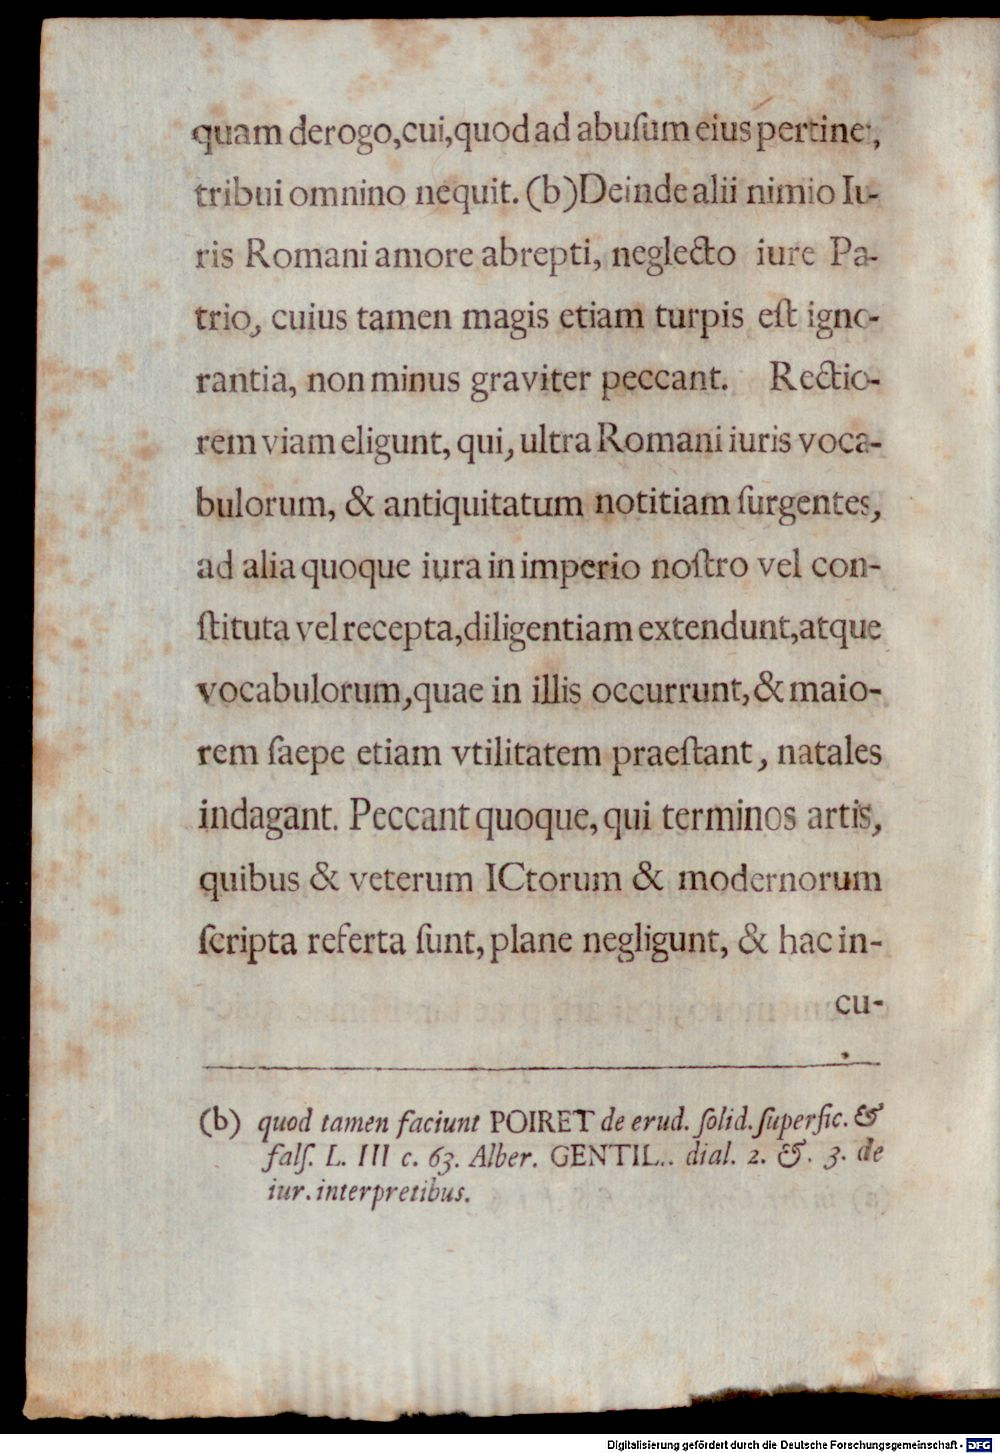 quam derogo, cui, quod ad abuſum eius pertinet,
tribui omnino nequit. (b) Deinde alii nimio Iu-
ris Romani amore abrepti, neglecto iure Pa-
trio, cuius tamen magis etiam turpis eſt igno-
rantia, non minus graviter peccant. Rectio-
rem viam eligunt, qui, ultra Romani iuris voca-
bulorum, & antiquitatum notitiam ſurgentes,
ad alia quoque iura in imperio noſtro vel con-
ſtituta vel recepta, diligentiam extendunt, atque
vocabulorum, quae in illis occurrunt, & maio-
rem ſaepe etiam vtilitatem praeſtant, natales
indagant. Peccant quoque, qui terminos artis,
quibus & veterum ICtorum & modernorum
ſcripta referta ſunt, plane negligunt, & hac in-
cu-
(b) quod tamen faciunt POIRET de erud. ſolid. ſuperfic. &
falſ. L. III c. 63. Alber. GENTIL.. dial. 2. &. 3. de
iur. interpretibus.
Digitalisierung gefördert durch die Deutsche Forschungsgemeinschaft - DFG